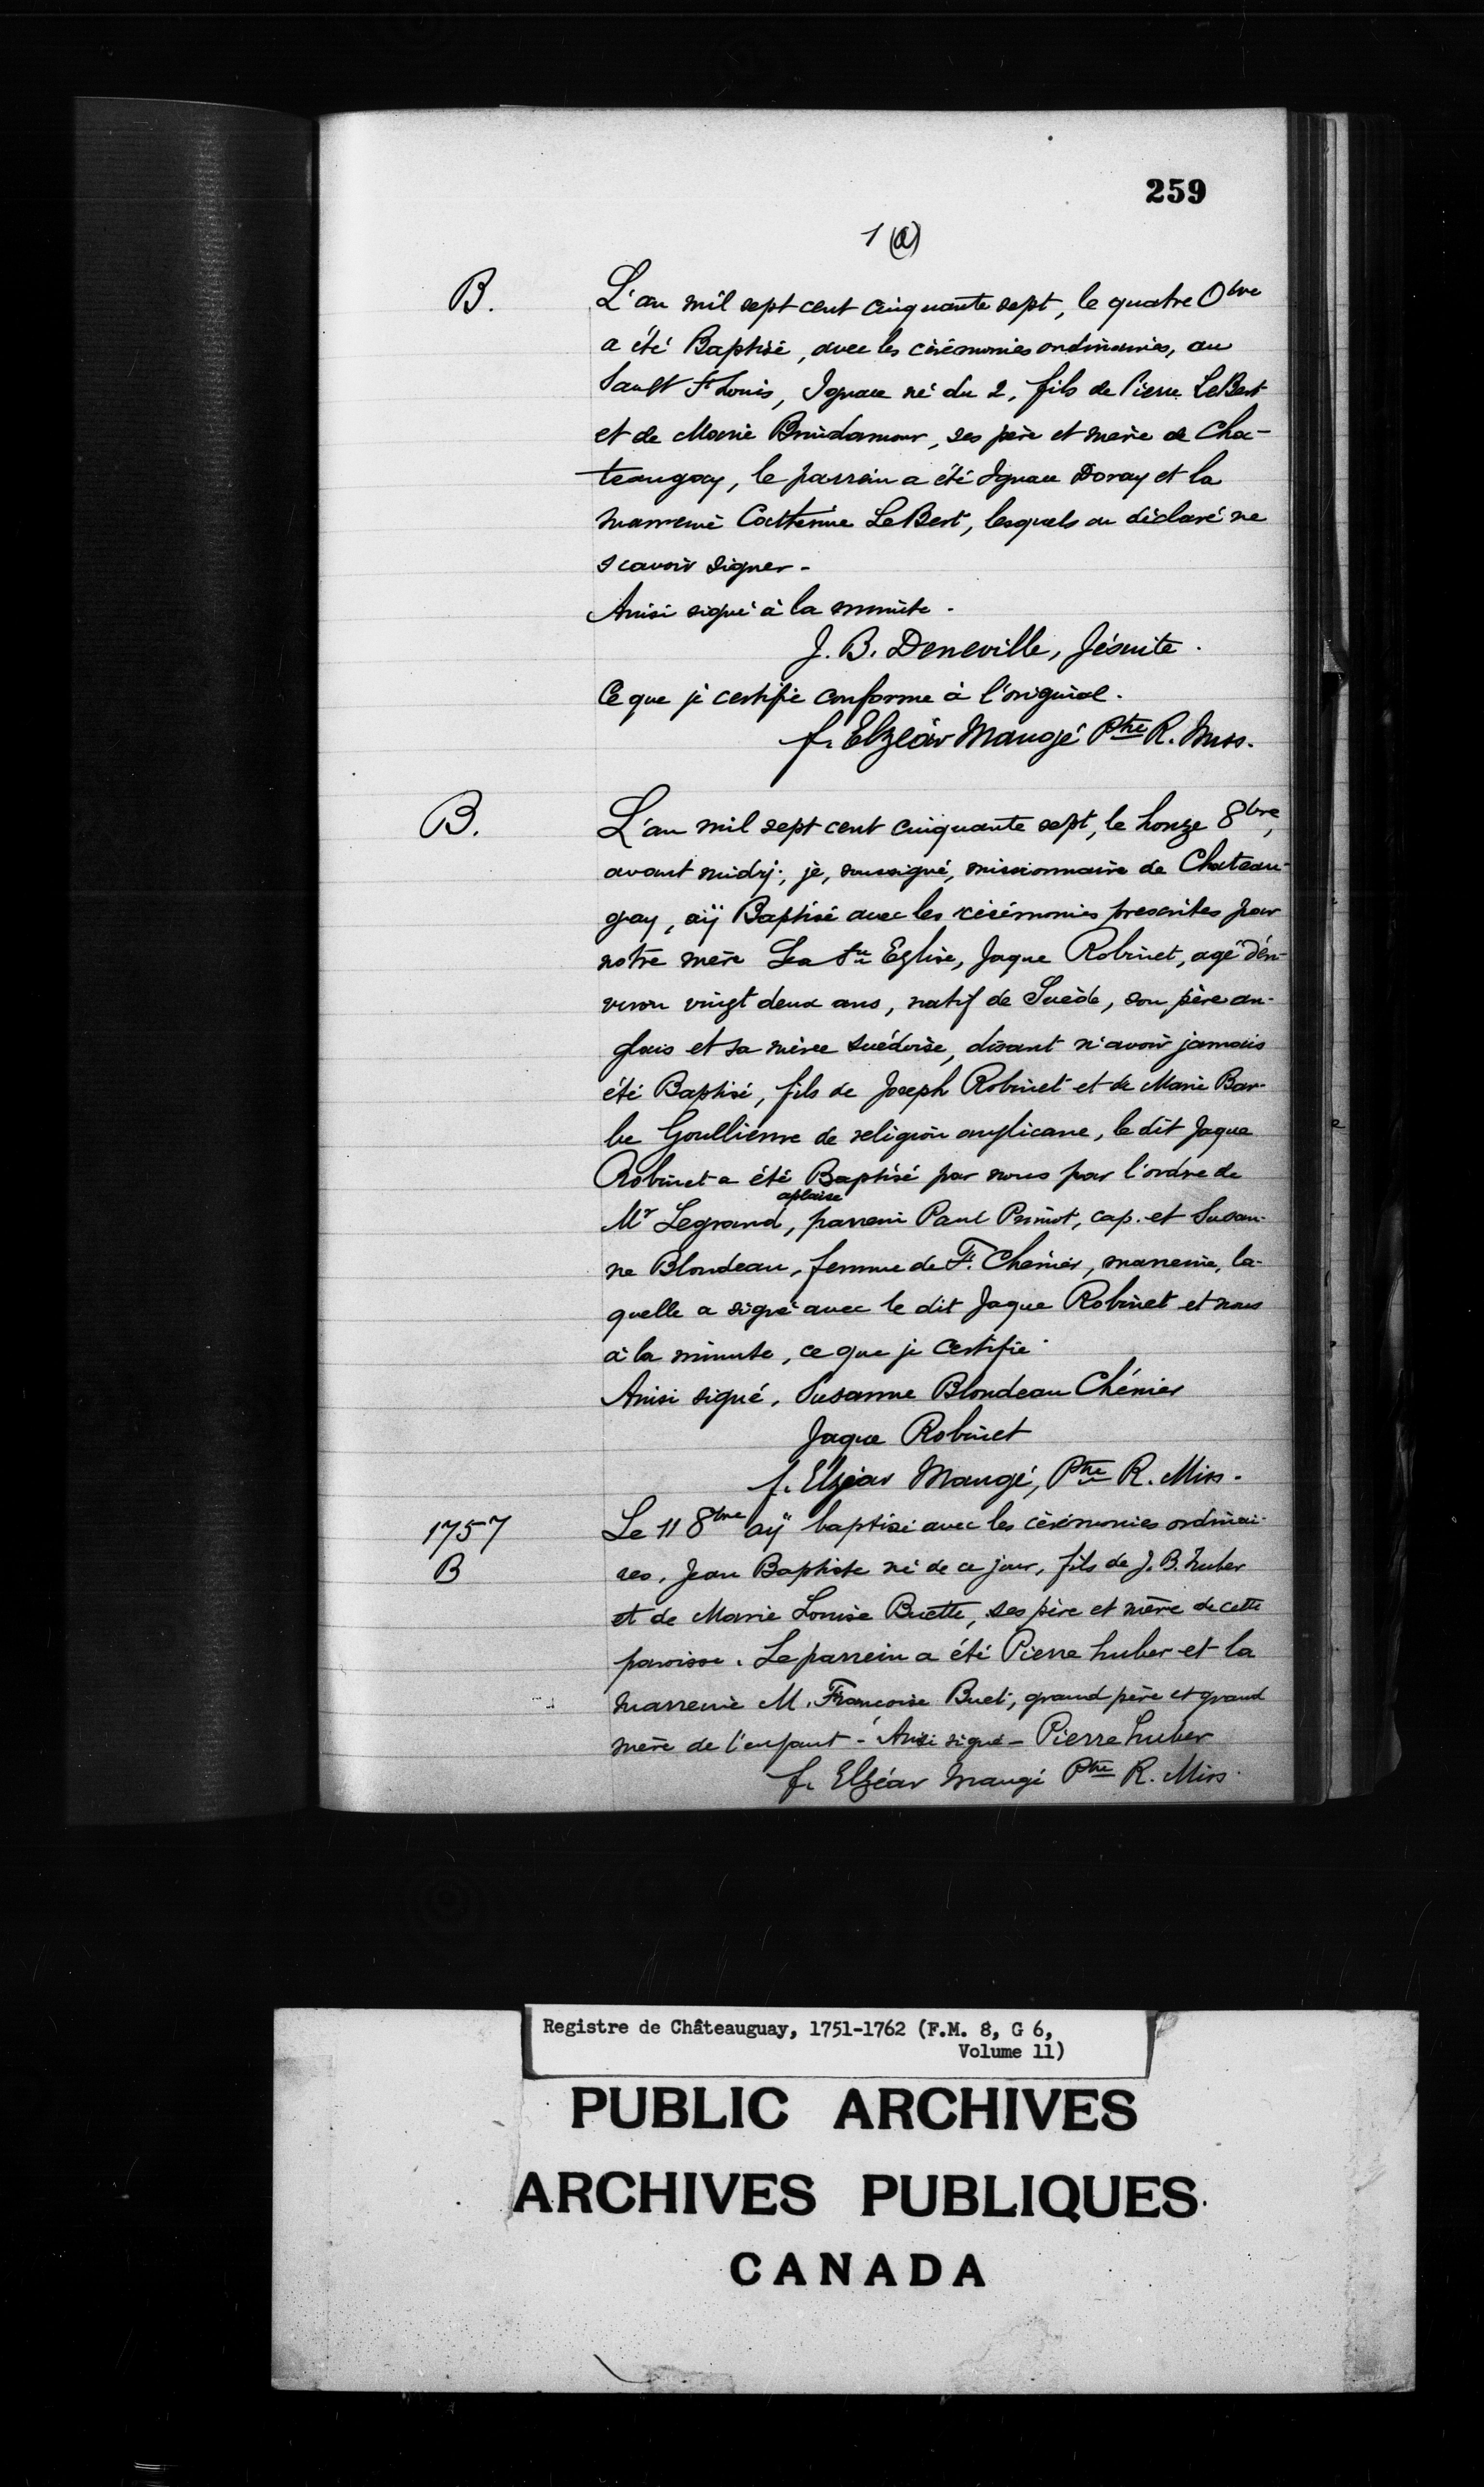 259
1 (a)
B. L'an mil sept cent cinquante sept, le quatre Obre
a été Baptisé, avec les cérémonies ordinaires, au
Sault St Louis, Ignace né du 2, fils de Pierre LeBert
et de Marie Primdamour, ses père et mère de Cha-
teaugay, le parrain a été Ignace Doray et la
marreine Catherine LeBert, lesquels on déclaré ne
scavoir signer -
Ainsi signé à la minute.
J. B. Deneville, Jésuite.
Ce que je certifie conforme à l'original.
f. Elzéar Maugé Ptre R. Miss.
B. L'an mil sept cent cinquante sept, le honze 8bre,
avant midy; je, soussigné, missionnaire de Chateau-
gay, aÿ Baptisé avec les cérémonies prescrites par
notre mère La Ste Eglise, Jaque Robinet, agé d'en-
viron vingt deux ans, natif de Suède, son père an-
glais et sa mère suédoise, disant n'avoir jamais
été Baptisé, fils de Joseph Robinet et de Marie Bar-
be Goullienne de religion anglicane, le dit Jaque
Robinet a été Baptisé par nous par l'ordre de
aplaise
Mr Legrand, parrein Paul Primot, cap. et Susan-
ne Blondeau, femme de F. Chenier, marreine, la-
quelle a signé avec le dit Jaque Robinet et nous
à la minute, ce que je certifie.
Ainsi signé, Susanne Blondeau Chénier
Jaque Robinet
f. Elzéar Maugé, Ptre R. Miss.
1757 Le 11 8bre aÿ baptisé avec les cérémonies ordinai-
B res, Jean Baptiste né de ce jour, fils de J. B. huber
et de Marie Louise Buette, ses père et mère de cette
paroisse. Le parrein a été Pierre huber et la
marreine M. Francoise Buet, grand père et grand
mère de l'enfant - Ainsi signé - Pierre huber
f. Elzéar Maugé Ptre R. Miss.
Registre de Châteauguay, 1751-1762 (F.M. 8, G 6,
Volume 11)
PUBLIC ARCHIVES
ARCHIVES PUBLIQUES
CANADA